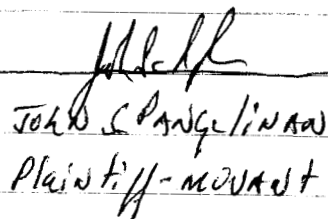 JOHN S PANGELINAN
Plaintiff-MOVANT